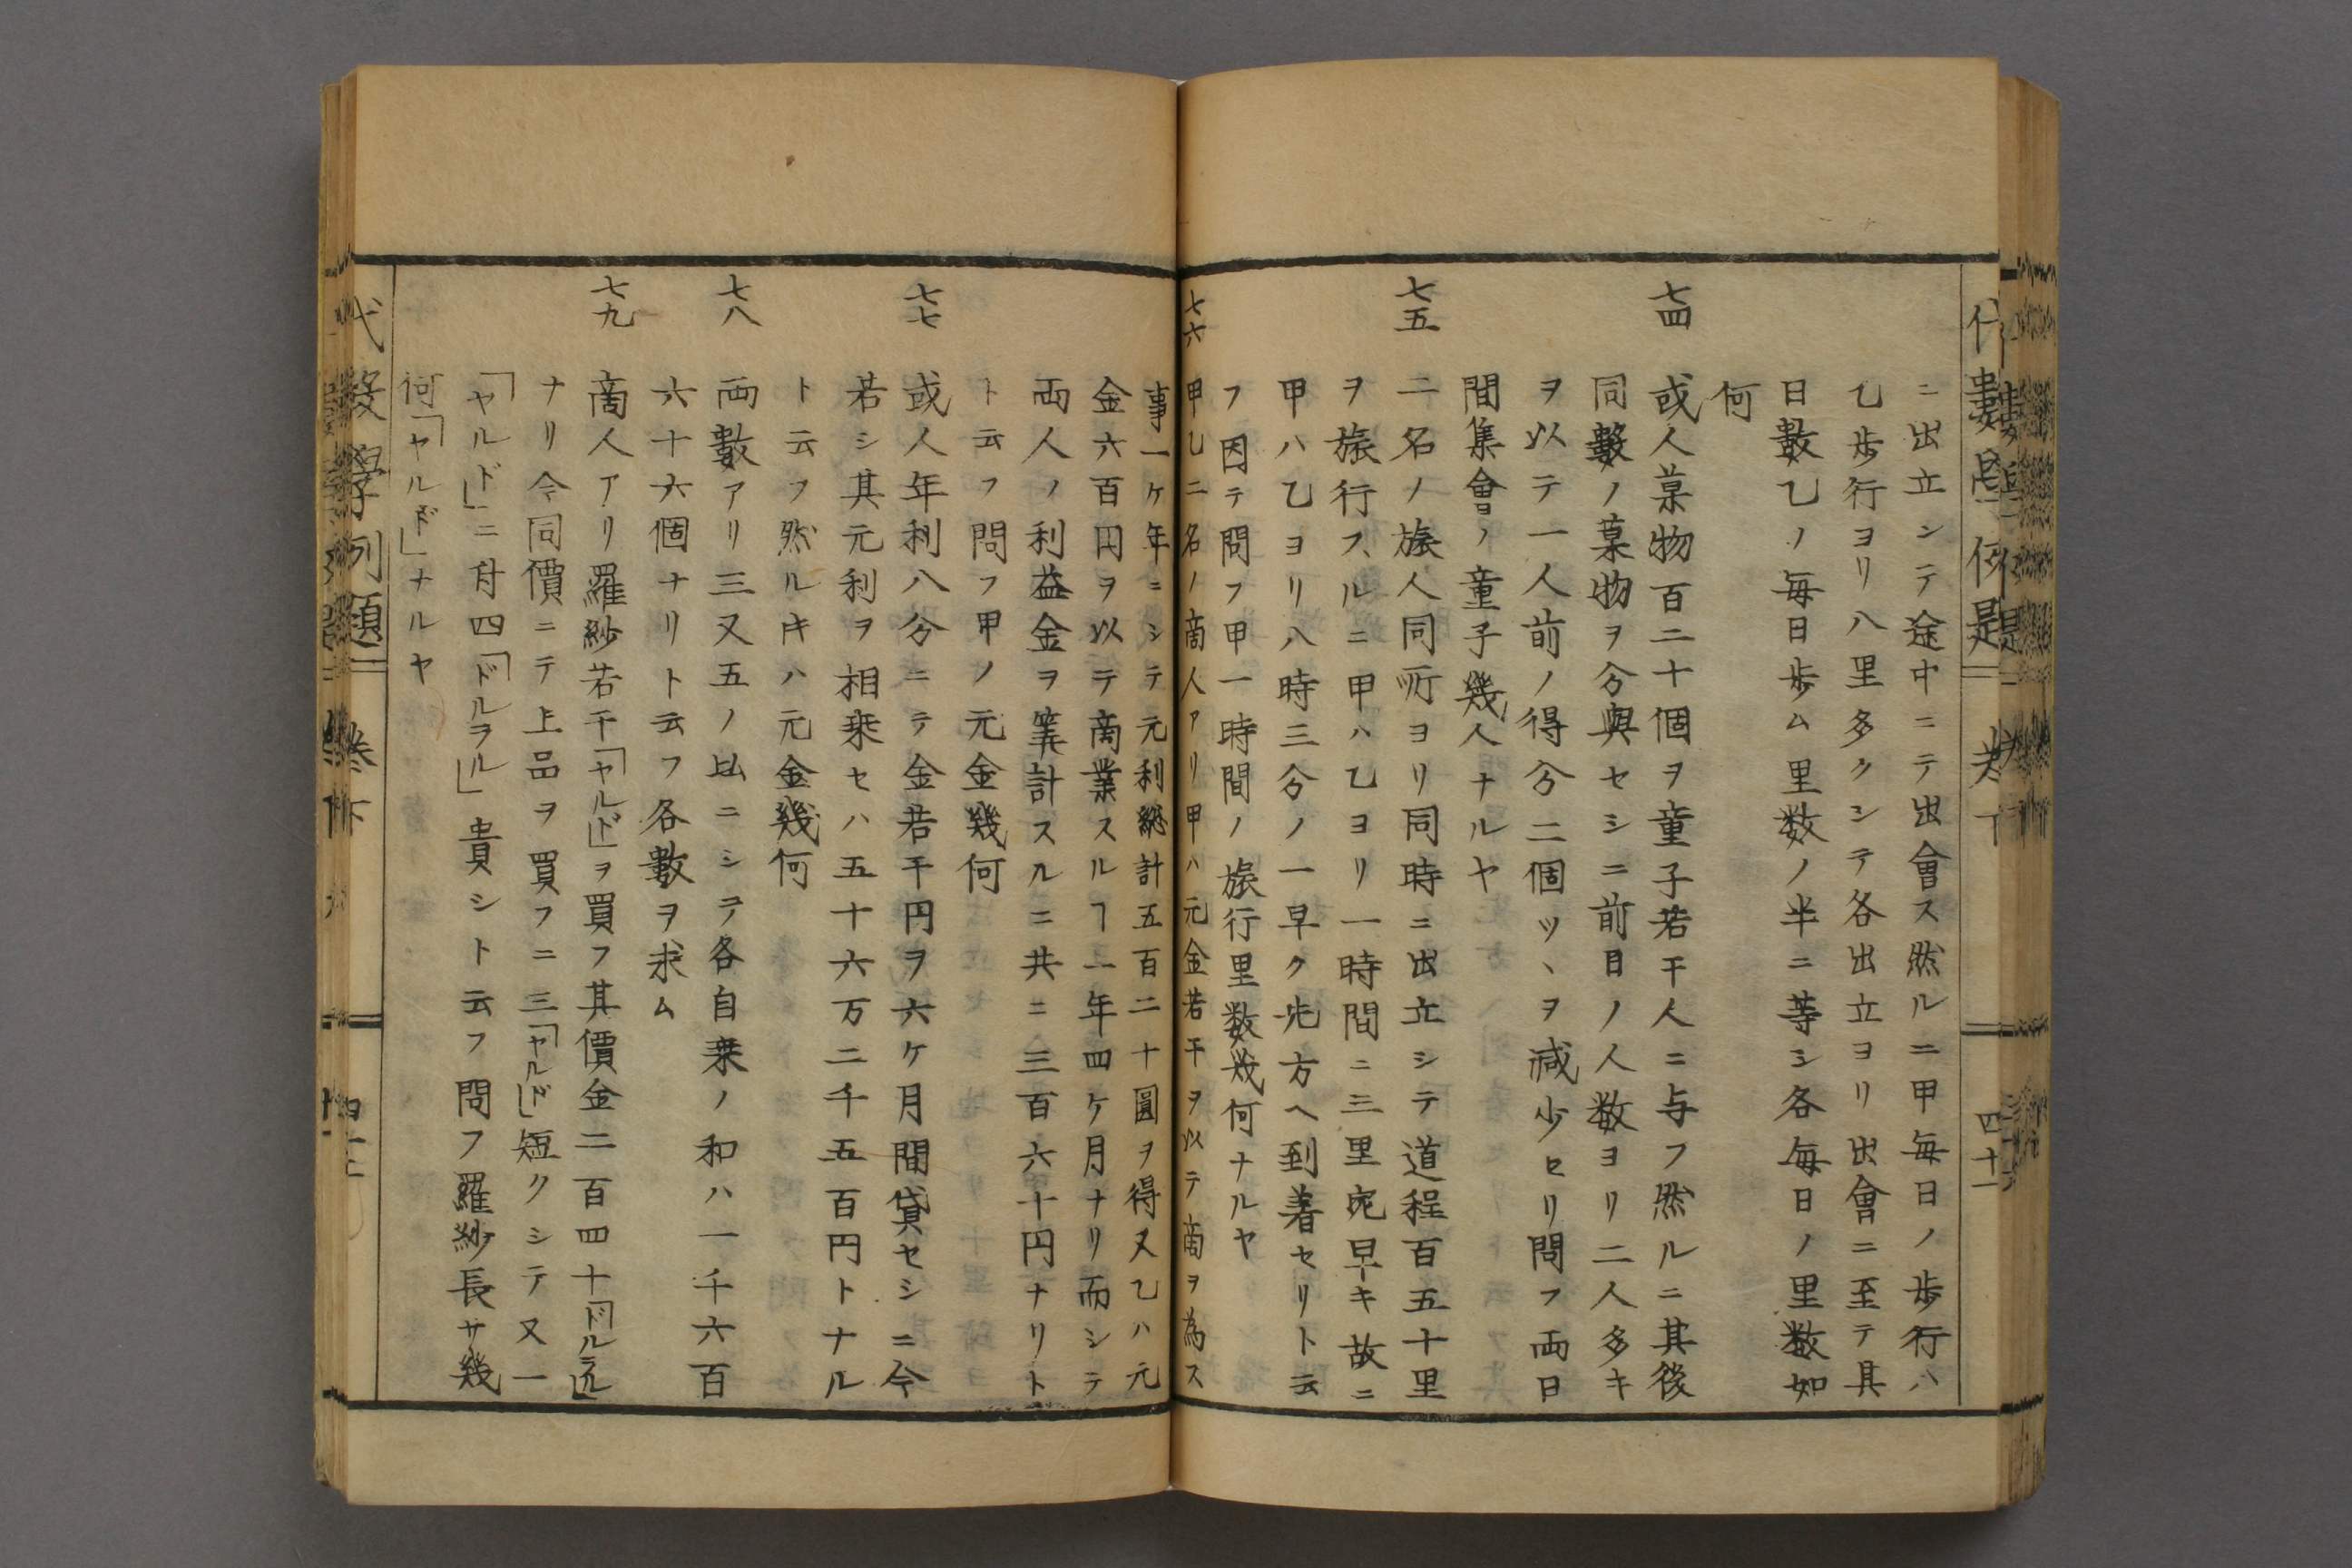 ニ出立シテ途中ニテ出會ス然ルニ甲毎日ノ歩行ハ
乙歩行ヨリ八里多クシテ各出立ヨリ出會ニ至テ其
日數乙ノ毎日歩ム里数ノ半ニ等シ各毎日ノ里数如
何
七四 或人菓物百二十個ヲ童子若干人ニ与フ然ルニ其後
同數ノ菓物ヲ分與セシニ前日ノ人数ヨリ二人多キ
ヲ以テ一人前ノ得分二個ツヽヲ減少セリ問フ両日
間集會ノ童子幾人ナルヤ
七五 二名ノ旅人同所ヨリ同時ニ出立シテ道程百五十里
ヲ旅行スルニ甲ハ乙ヨリ一時間ニ三里宛早キ故ニ
甲ハ乙ヨリ八時三分ノ一早ク先方ヘ到着セリト云
フ因テ問フ甲一時間ノ旅行里数幾何ナルヤ
七六 甲乙二名ノ商人アリ甲ハ元金若干ヲ以テ商ヲ為ス
事一ケ年ニシテ元利総計五百二十圓ヲ得又乙ハ元
金六百円ヲ以テ商業スルヿ一年四ケ月ナリ而シテ
両人ノ利益金ヲ筭計スルニ共ニ三百六十円ナリト
ト云フ問フ甲ノ元金幾何
七七 或人年利八分ニテ金若干円ヲ六ケ月間貸セシニ今
若シ其元利ヲ相乗セハ五十六万二千五百円トナル
ト云フ然ルキハ元金幾何
七八 両數アリ三又五ノ比ニシテ各自乗ノ和ハ一千六百
六十六個ナリト云フ各數ヲ求ム
七九 商人アリ羅紗若干「ヤルド」ヲ買フ其價金二百四十「ドルラル」
ナリ今同價ニテ上品ヲ買フニ三「ヤルド」短クシテ又一
「ヤルド」ニ付四「ドルラル」貴シト云フ問フ羅紗長サ幾
何「ヤルド」ナルヤ
代數學例題 巻下